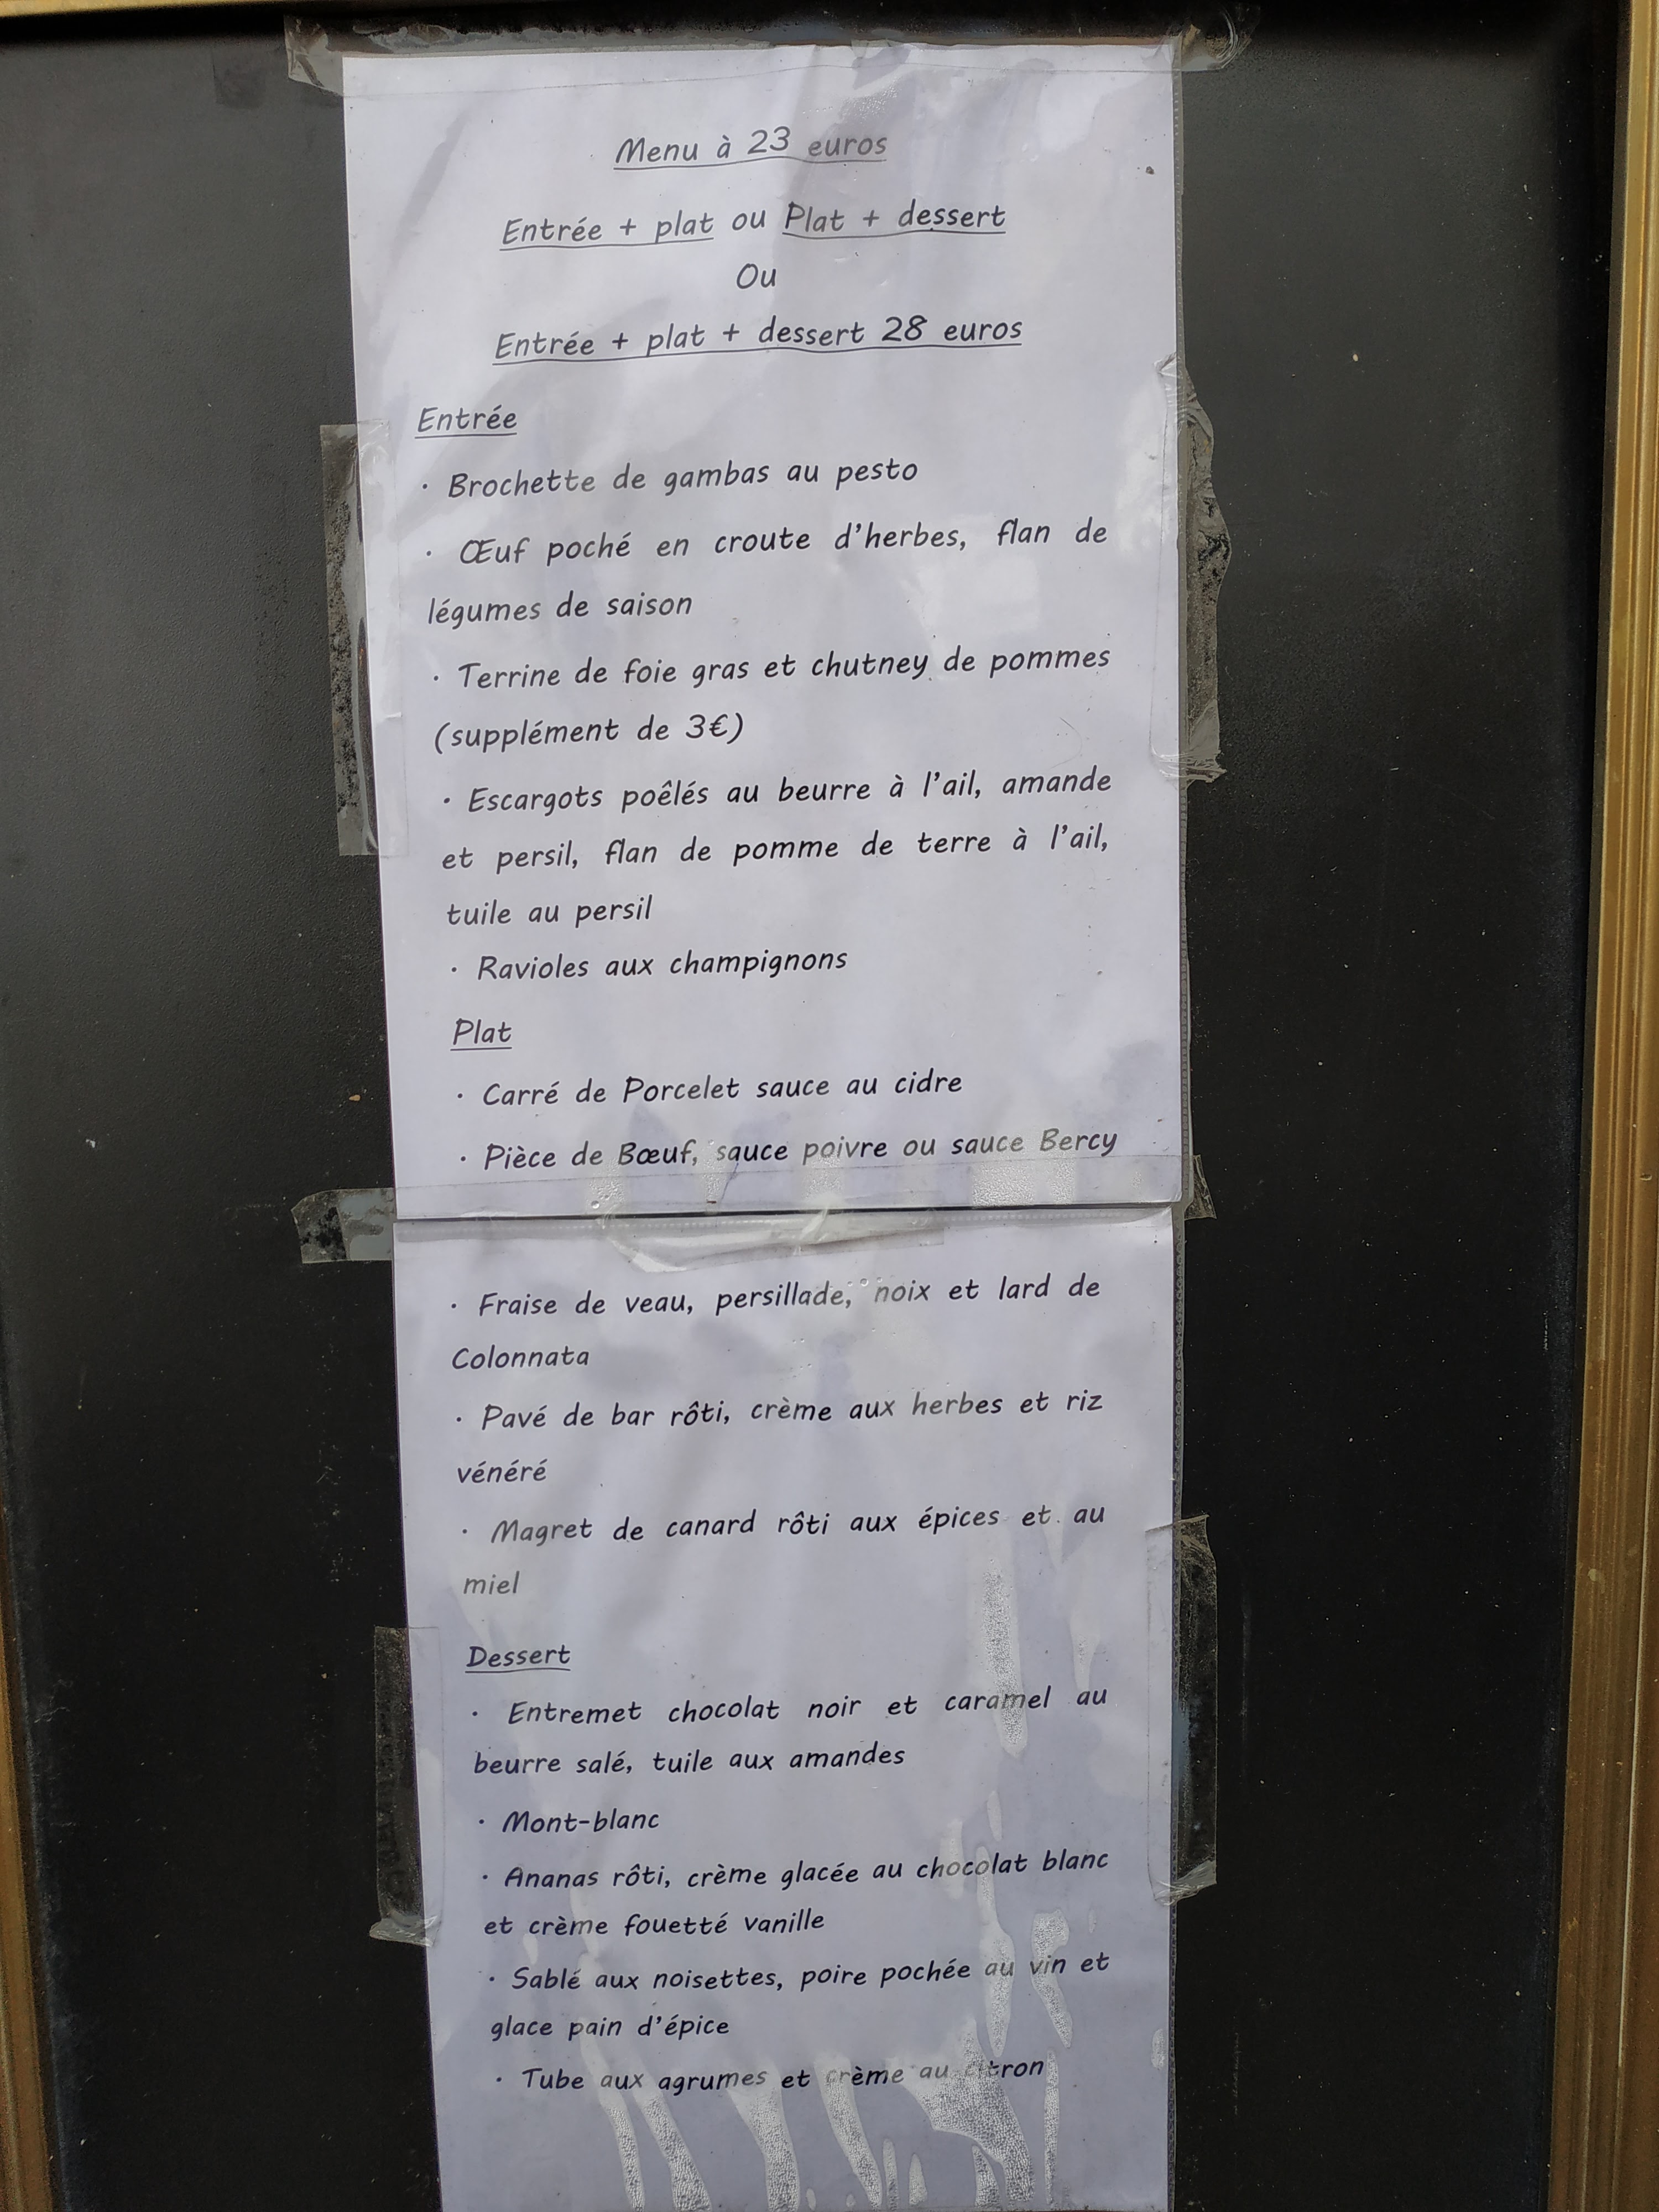 Menu à 23 euros
Entrée + plat ou Plat + dessert
Ou
Entrée + plat + dessert 28 euros
Entrée
· Brochette de gambas au pesto
· Œuf poché en croute d'herbes, flan de
légumes de saison
· Terrine de foie gras et chutney de pommes
(supplément de 3€)
· Escargots poêlés au beurre à l'ail, amande
et persil, flan de pomme de terre à l'ail,
tuile au persil
· Ravioles aux champignons
Plat
· Carré de Porcelet sauce au cidre
· Pièce de Bœuf, sauce poivre ou sauce Bercy
· Fraise de veau, persillade, noix et lard de
Colonnata
· Pavé de bar rôti, crème aux herbes et riz
vénéré
· Magret de canard rôti aux épices et au
miel
Dessert
· Entremet chocolat noir et caramel au
beurre salé, tuile aux amandes
· Mont-blanc
· Ananas rôti, crème glacée au chocolat blanc
et crème fouetté vanille
· Sablé aux noisettes, poire pochée au vin et
glace pain d'épice
· Tube aux agrumes et crème au citron